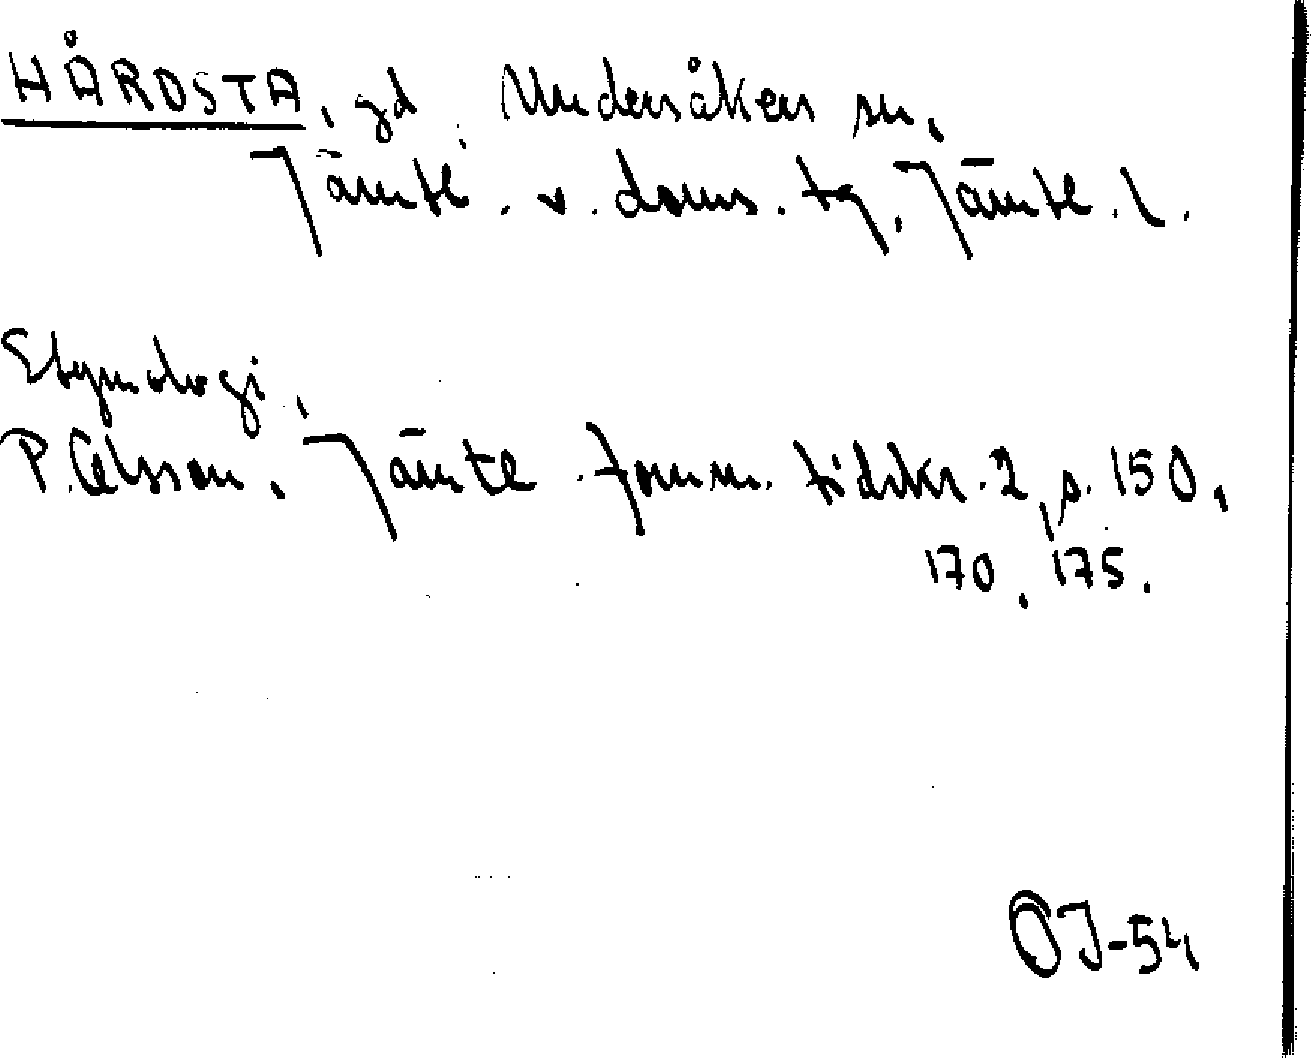 HÅRDSTA, gd, Undersåkers sn,
Jämtl. v. doms. tg, Jämtl. l.
Etymologi,
P. Olsson, Jämtl. fornm. tidskr. 2, s. 150,
170, 175.
OJ-54